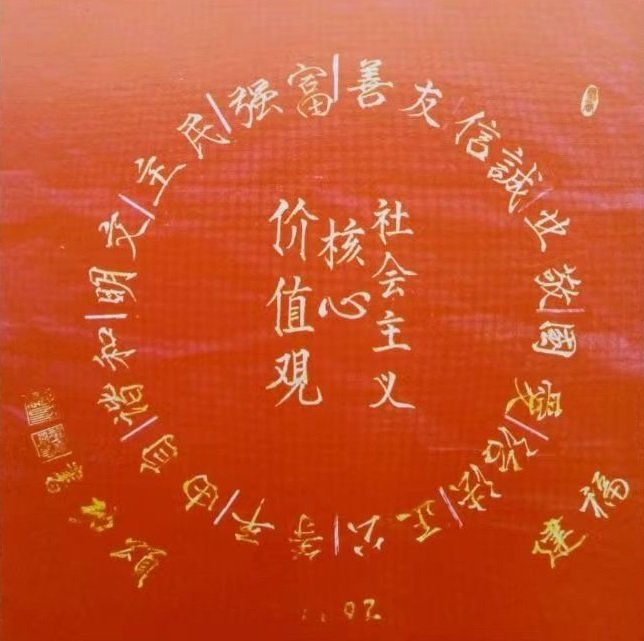 社会主义
核心
价值观
富强
民主
文明
和谐
自由
平等
公正
法治
爱國
敬业
誠信
友善
福建